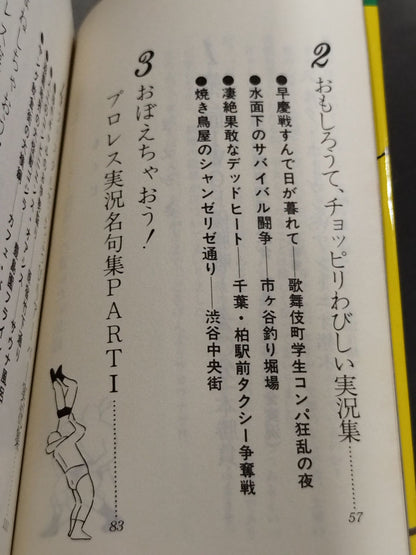 2 おもしろうて、チョッピリわびしい実況集……………57
●早慶戦すんで日が暮れて――歌舞伎町学生コンパ狂乱の夜
●水面下のサバイバル闘争――市ヶ谷釣り堀場
●凄絶果敢なデッドヒート――千葉・柏駅前タクシー争奪戦
●焼き鳥屋のシャンゼリゼ通り――渋谷中央街
3 おぼえちゃおう!
プロレス実況名句集PARTⅠ……………83